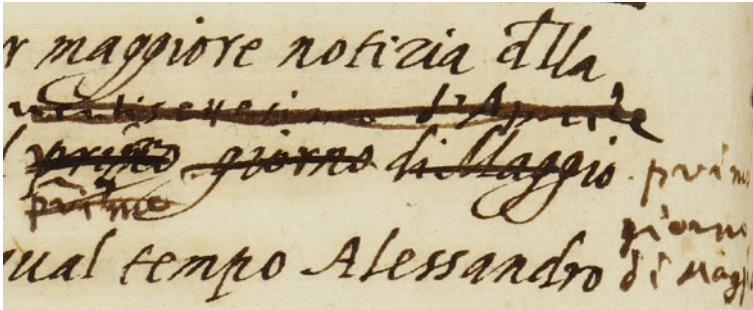 r maggiore notitia dlla
ventisettesimo d'Aprile
l primo giorno di Maggio
primo
qual tempo Alessandro
primo
giorno
di Magg